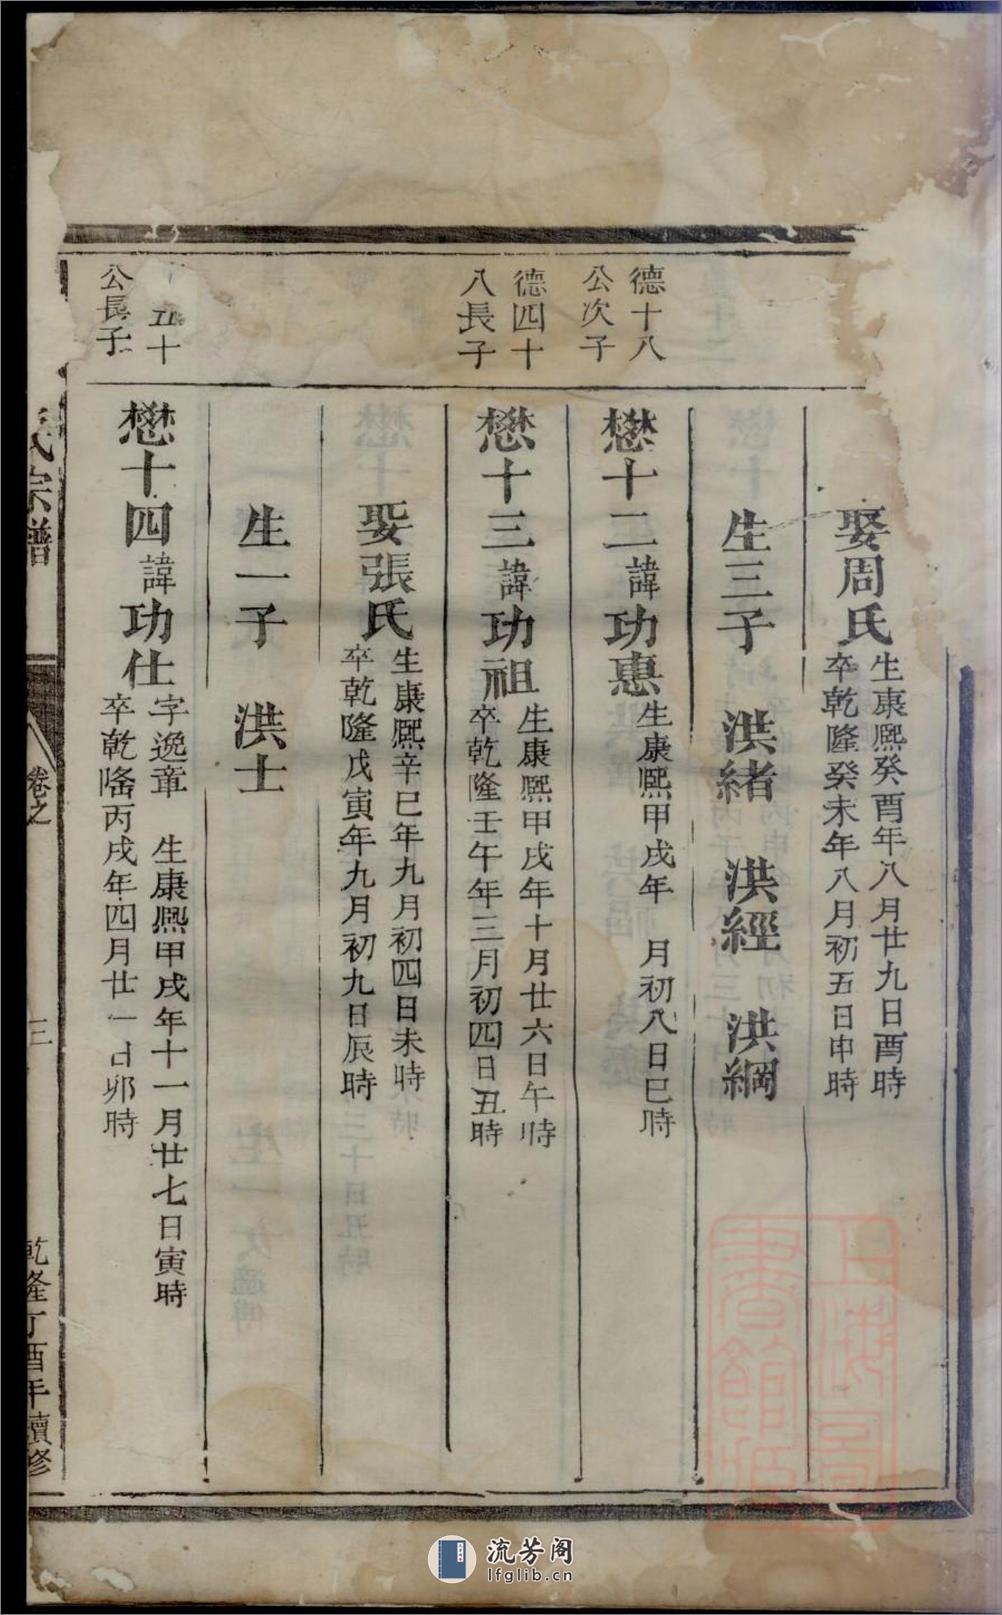 娶周氏
生康熙癸酉年八月廿九日酉時
卒乾隆癸未年八月初五日申時
生三子 洪緒 洪經 洪綱
德十八
公次子
懋十二諱功惠
生康熙甲戌年 月初八日巳時
德四十
八長子
懋十三諱功祖
生康熙甲戌年十月廿六日午時
卒乾隆壬午年三月初四日丑時
娶張氏
生康熙辛巳年九月初四日未時
卒乾隆戊寅年九月初九日辰時
生一子 洪士
五十
公長子
懋十四諱功仕
字逸章 生康熙甲戌年十一月廿七日寅時
卒乾隆丙戌年四月廿一日卯時
氏宗譜
卷之
三
乾隆丁酉年續修
上海圖
書館藏
流芳阁
lfglib.cn